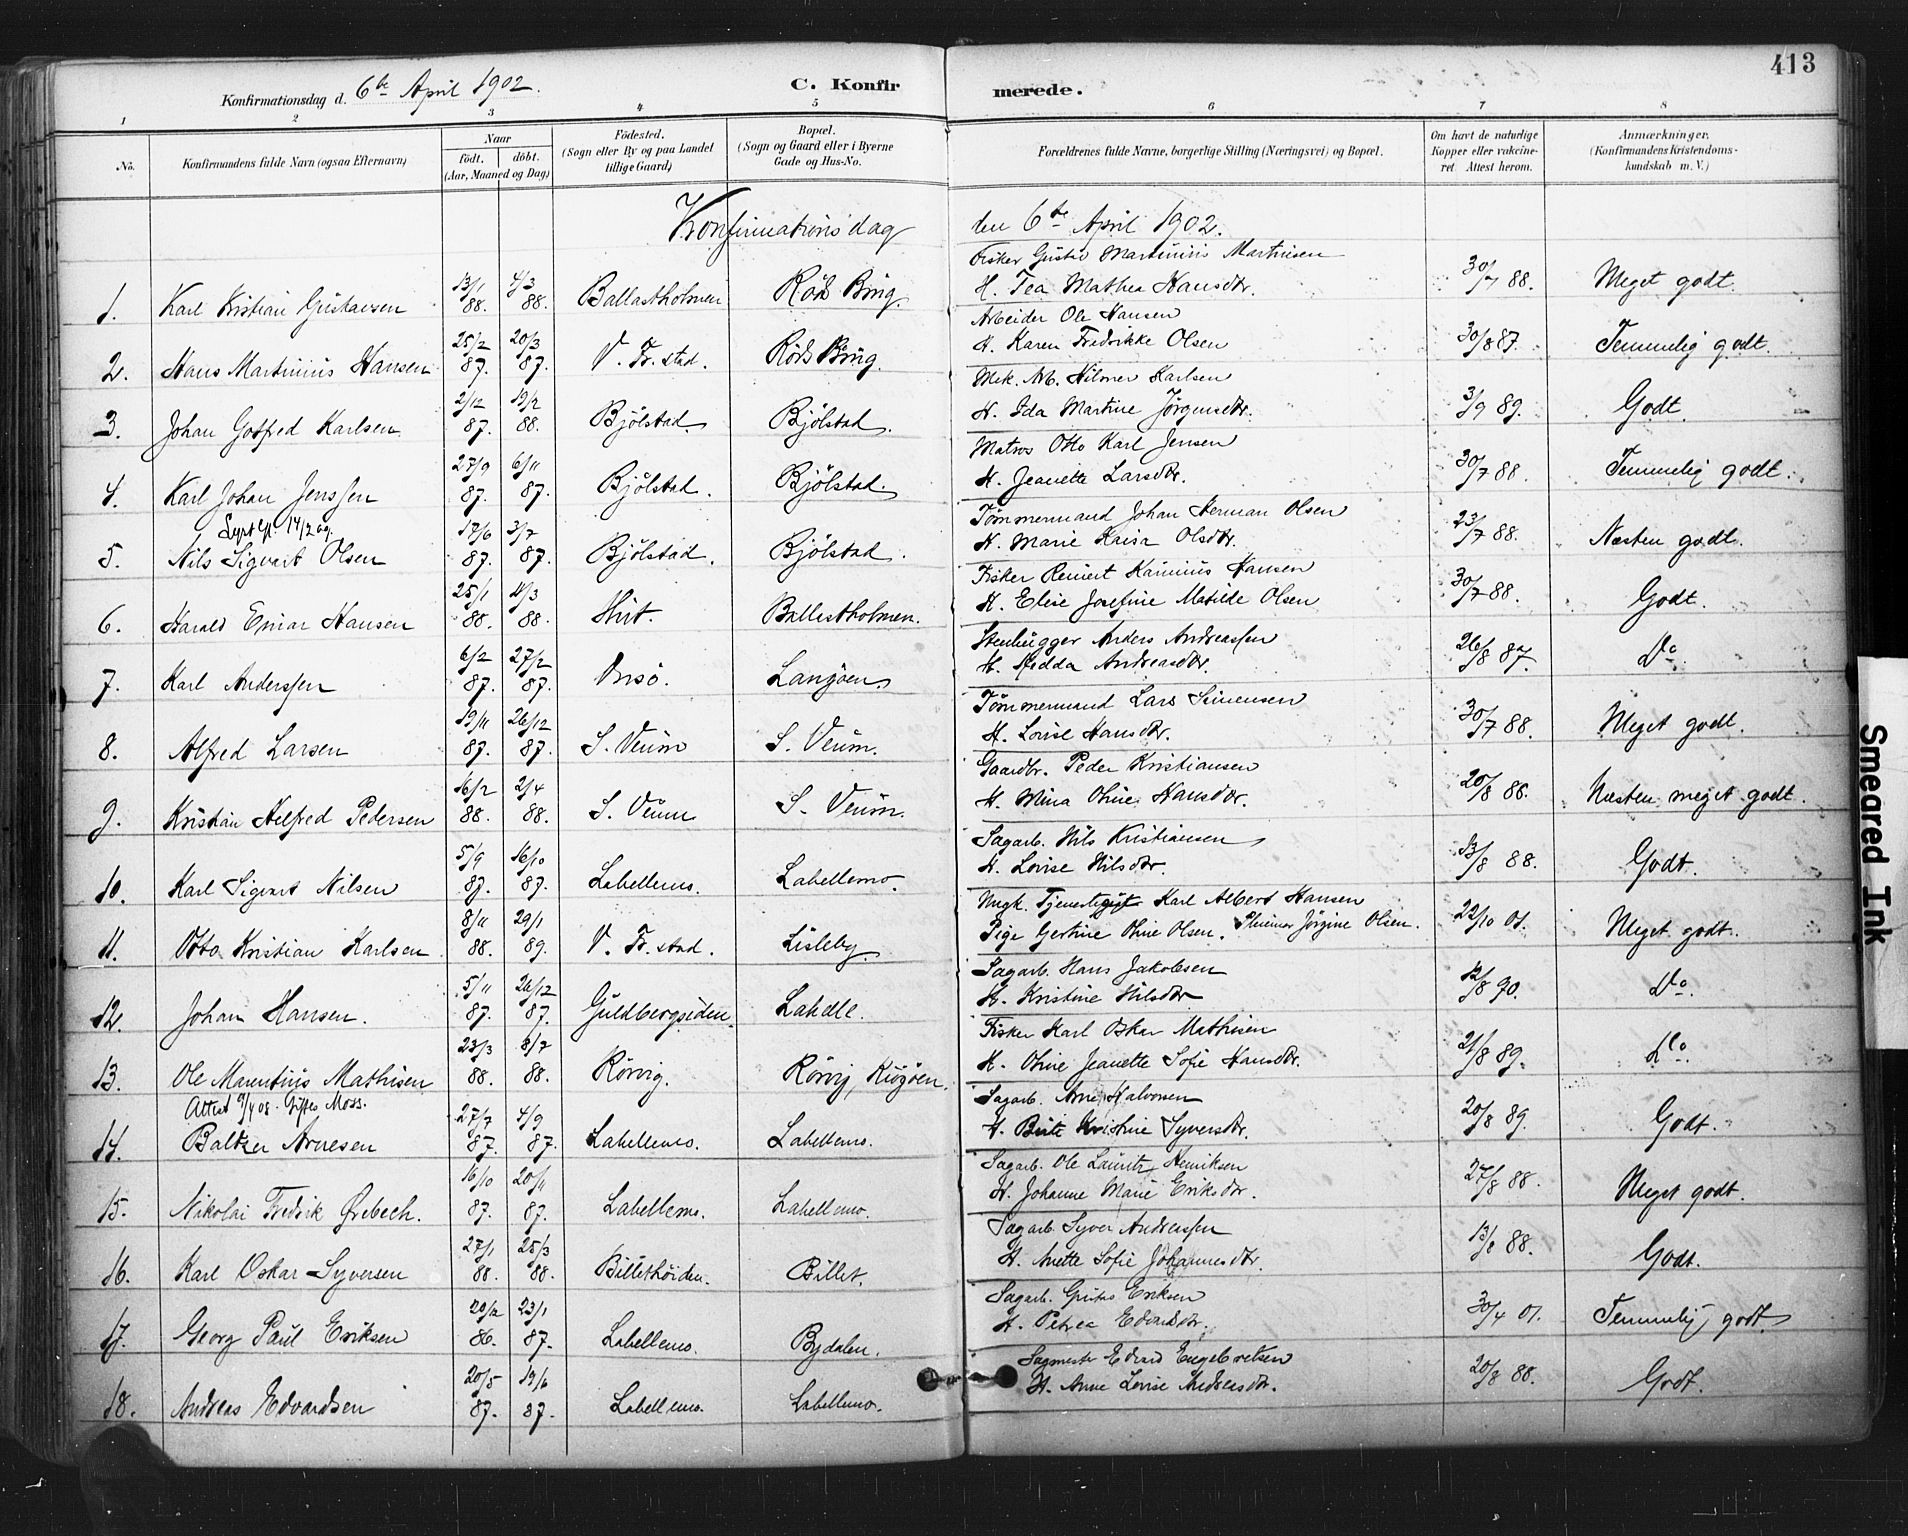 413
Konfirmationsdag d. 6te April 1902. C. Konfirmerede.
1 2 3 4 5 6 7 8
No. Konfirmandens fulde Navn (ogsaa Efternavn) Naar födt. döbt. (Aar, Maaned og Dag) Födested. (Sogn eller By og paa Landet tillige Gaard) Bopæl. (Sogn og Gaard eller i Byerne Gade og Hus-No. Forældrenes fulde Navne, borgerlige Stilling (Næringsvei) og Bopæl. Om havt de naturlige Kopper eller vakcineret Attest herom. Anmærkninger. (Konfirmandens Kristendomskundskab m. V.)
Konfirmationsdag den 6te April 1902.
1. Karl Kristian Gustavsen 13/1 88. 4/3 88. Ballastholmen Röds Brug. Fisker Gustav Martinius Martinsen H. Tea Mathea Hansdtr. 30/7 88. Meget godt.
2. Hans Martinius Hansen 25/2 87. 20/3 87. V. Fr.stad. Röds Brug. Arbeider Ole Hansen H. Karen Fredrikke Olsen 30/8 87. Temmelig godt.
3. Johan Gotfred Karlsen 2/12 87. 19/2 88. Bjölstad. Bjölstad. Mek. Arb. Hilmer Karlsen H. Ida Martine Jörgensdtr. 3/9 89. Godt.
4. Karl Johan Jenssen 27/9 87. 6/11 87. Bjölstad. Bjölstad. Matros Otto Karl Jensen H. Jeanette Larsdtr. 30/7 88. Temmelig godt.
5. 14/2 09. Nils Sigvart Olsen 17/6 87. 3/7 87. Bjölstad. Bjölstad. Tömmermand Johan Herman Olsen H. Marie Kaisa Olsdtr. 23/7 88. Næsten godt.
6. Harald Einar Hansen 25/1 88. 11/3 88. Hut. Ballastholmen. Fisker Reinert Hansen H. Elise Josefine Matilde Olsen 30/7 88. Godt.
7. Karl Anderssen 6/2 87. 27/2 87. Onsö. Langöen. Stenhugger Anders Andreassen H. Hedda Andreasdtr. 26/8 87. Do.
8. Alfred Larsen 19/11 87. 26/12 87. S. Veum S. Veum. Tömmermand Lars Simensen H. Lovise Hansdtr. 30/7 88. Meget godt.
9. Kristian Helfred Pedersen 16/2 88. 2/4 88. S. Veum S. Veum. Gaardbr. Peder Kristiansen H. Mina Oline Hansdtr. 20/8 88. Næsten meget godt.
10. Karl Sigvart Nilsen 5/9 87. 16/10 87. Labellemo. Labellemo. Sagarb. Nils Kristiansen H. Lovise Nilsdtr. 13/8 88. Godt.
11. Otto Kristian Karlsen 8/11 88. 29/1 89. V. Fr.stad. Lisleby. Ungk. Karl Albert Hansen Pige Gertine Oline Olsen. Jörgine Olsen. 22/10 01. Meget godt.
12. Johan Hansen. 5/11 87. 26/12 87. Guldbergsiden. Lahelle. Sagarb. Hans Jakobsen H. Kristine Nilsdtr 12/8 90. Do.
13. Ole Marentius Mathisen 23/3 88. 8/7 88. Rörvig. Rörvig, Kjögöen. Fisker Karl Oskar Mathisen H. Oline Jeanette Sofie Hansdtr. 21/8 89. Do.
14. Attest 9/4 08. Giftes Moss. Baltzer Arnesen 27/7 87. 4/9 87. Labellemo. Labellemo. Sagarb. Arne Halvorsen H. Berte Kristine Syversdtr. 20/8 89. Godt.
15. Nikolai Fredrik Ørebech. 16/10 87. 20/11 87. Labellemo. Labellemo. Sagarb. Ole Lauritz Henriksen H. Johanne Marie Eriksdtr. 27/8 88. Meget godt.
16. Karl Oskar Syversen 27/1 88. 25/3 88. Billethöiden. Billet. Sagarb. Syver Andreassen H. Anette Sofie Johannesdtr. 13/8 88. Godt.
17. Georg Paul Eriksen 20/12 86. 23/1 87. Labellemo. Bydalen. Sagarb. Eriksen H. Petrea Edvardsdtr. 30/4 01. Temmelig godt
18. Andreas Edvardsen 20/5 87. 19/6 87. Labellemo. Labellemo. Sagmester Edvard Engebretsen H. Anne Lovise Andreasdtr. 20/8 88. Godt.
Smeared Ink